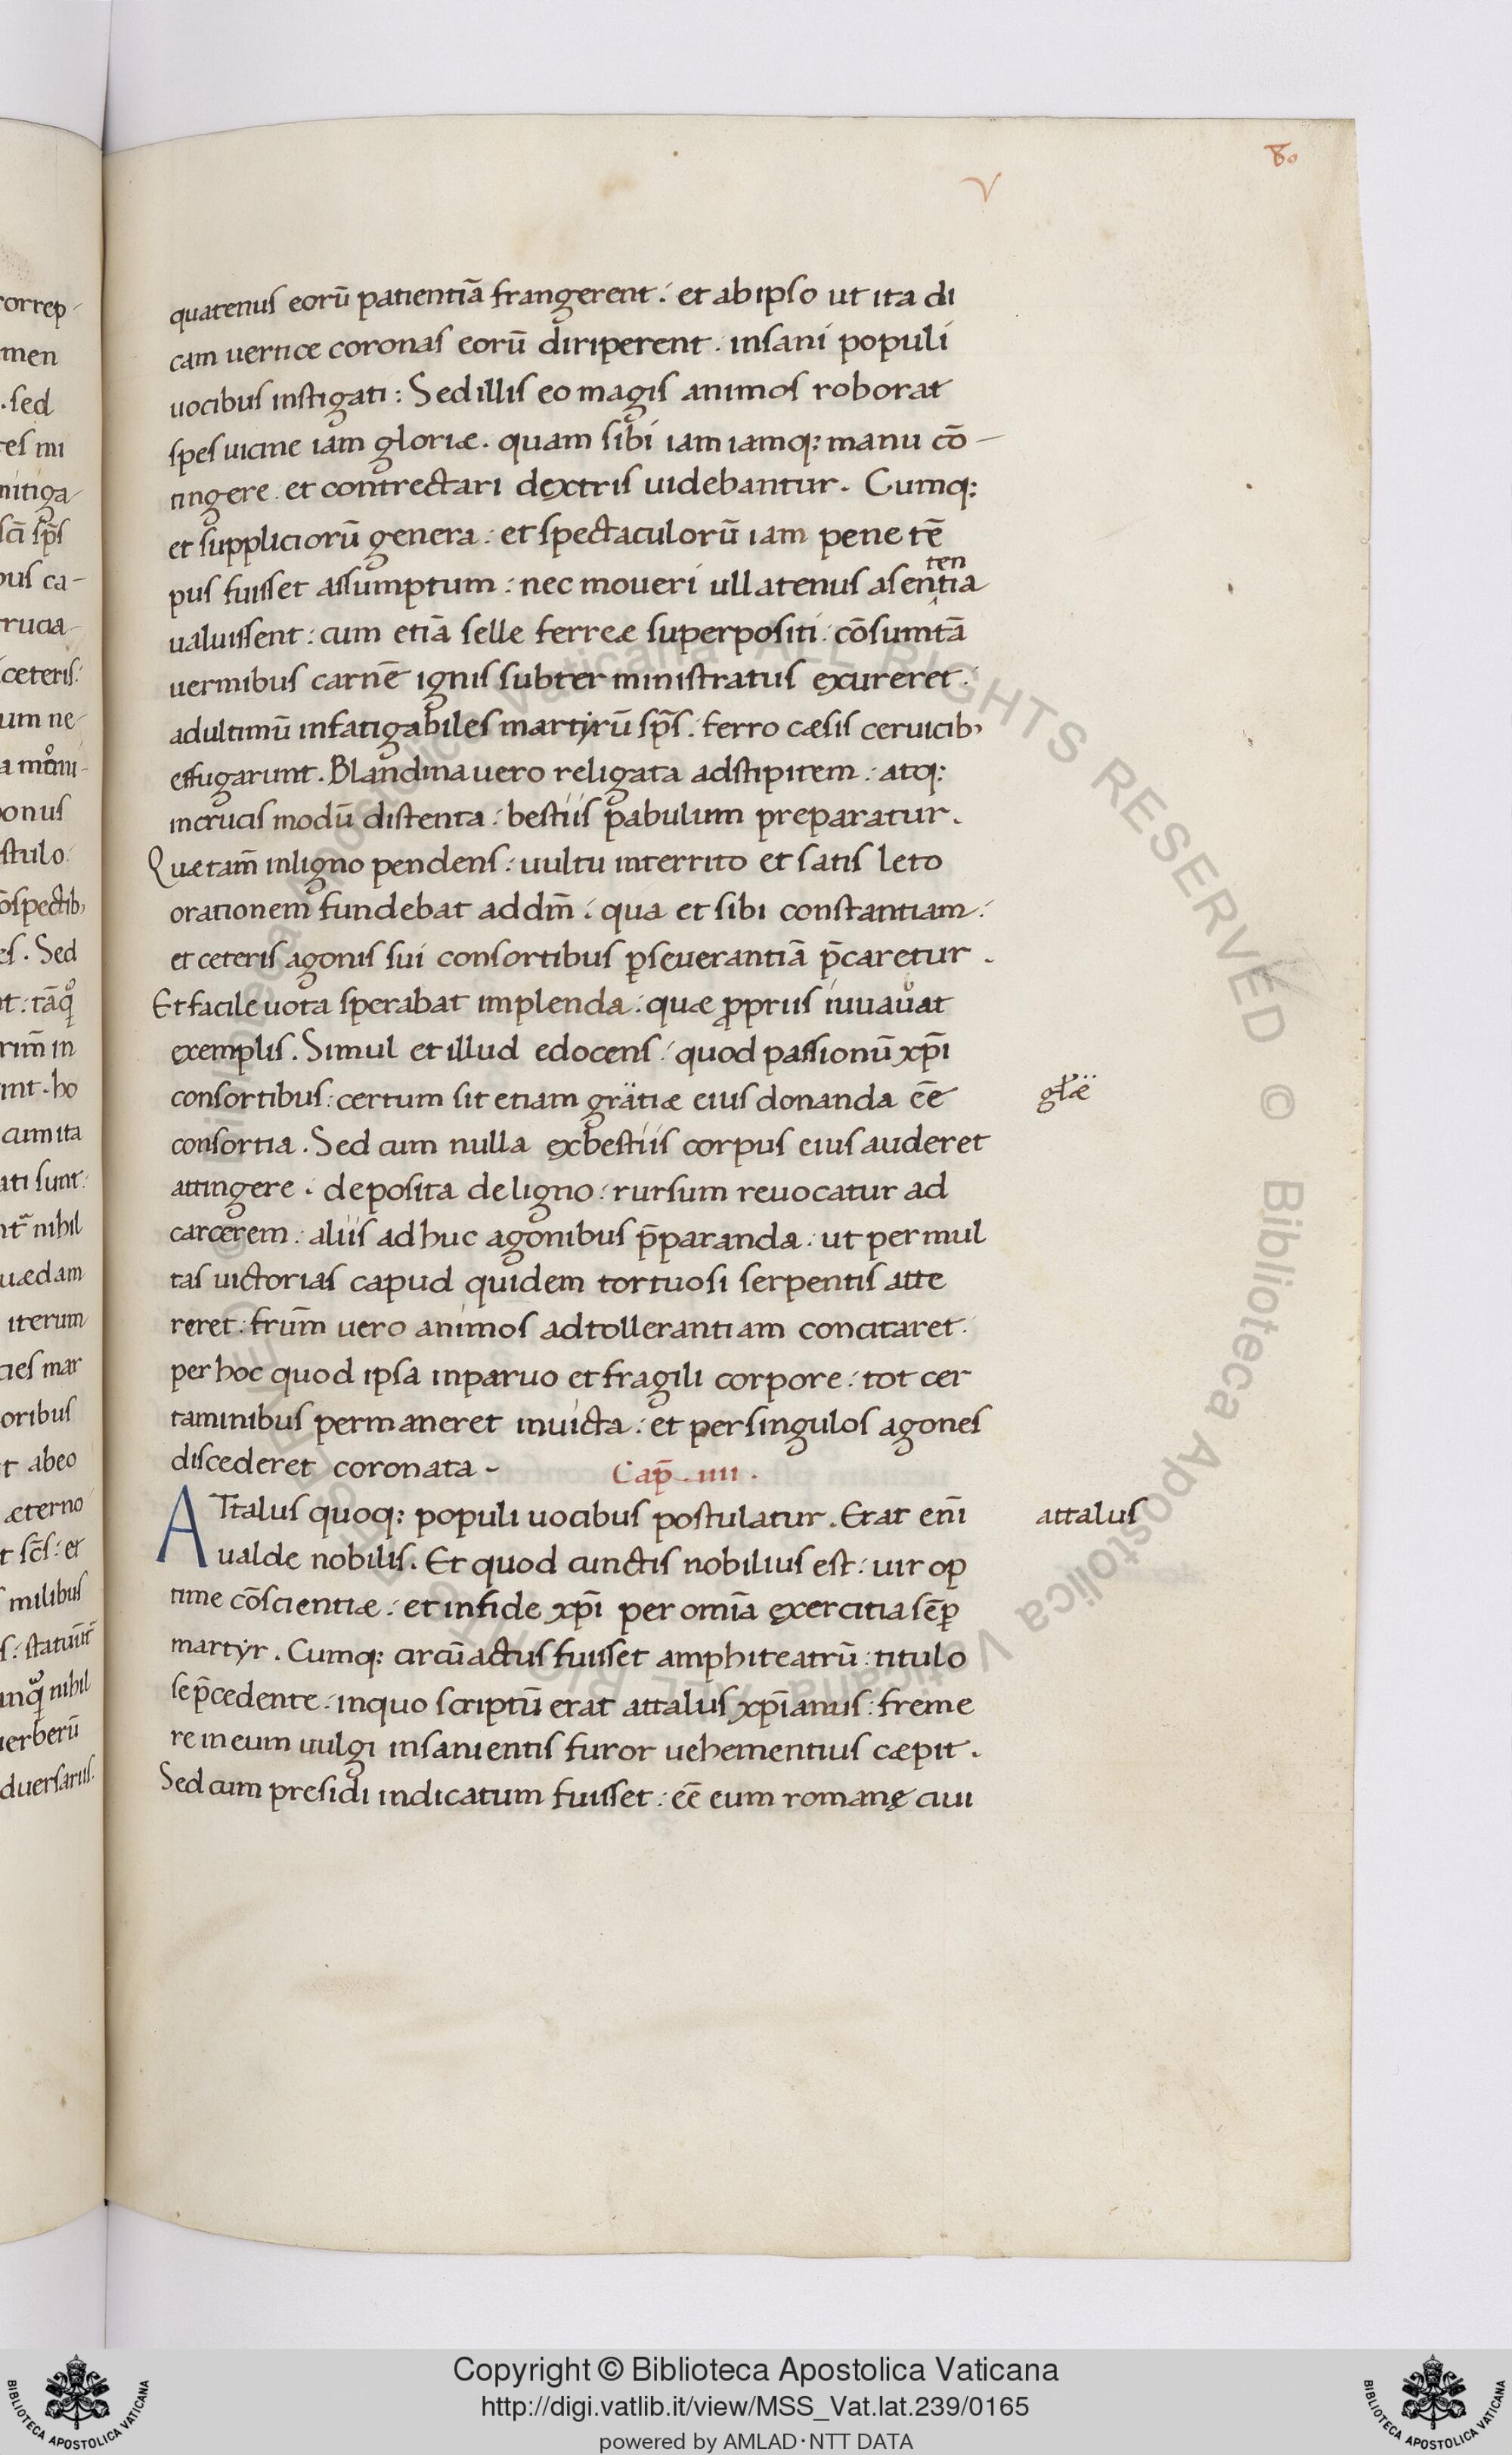 80
V
quatenus eorū patientiā frangerent: et ab ipso ut ita di
cam uertice coronas eorū diriperent. insani populi
uocibus instigati: Sed illis eo magis animos roborat
spes uicine iam gloriæ. quam sibi iam iamq; manu cō-
tingere. et contrectari dextris uidebantur. Cumq;
et suppliciorū genera: et spectaculorū iam pene tē
pus fuisset assumptum: nec moueri ullatenus a sententia
ualuissent: cum etiā selle ferreæ superpositi: cōsumtā
uermibus carnē ignis subter ministratus excureret:
ad ultimū infatigabiles martyrū sp̄s: ferro cæsis ceruicib;
effugarunt. Blandina uero religata ad stipitem: atq;
in crucis modū distenta: bestiis pabulum preparatur.
Quæ tam̄ in ligno pendens: uultu interrito et satis leto
orationem fundebat ad dm̄: qua et sibi constantiam:
et ceteris agonis sui consortibus ꝑseuerantiā p̄caretur.
Et facile uota sperabat implenda: quæ ꝓpriis iuuauat
exemplis. Simul et illud edocens: quod passionū xp̄i
consortibus: certum sit etiam gratiæ eius donanda eē
gl̄æ
consortia. Sed cum nulla ex bestiis corpus eius auderet
attingere: deposita de ligno: rursum reuocatur ad
carcerem: aliis adhuc agonibus p̄paranda: ut per mul
tas uictorias capud quidem tortuosi serpentis atte
reret: frum̄ uero animos ad tollerantiam concitaret:
per hoc quod ipsa in paruo et fragili corpore: tot cer
taminibus permaneret inuicta: et per singulos agones
discederet coronata- Cap̄. IIII.
ATtalus quoq; populi uocibus postulatur. Erat eni̅
attalus
ualde nobilis. Et quod cunctis nobilius est: uir op
time cōscientiæ: et in fide xp̄i per omīa exercitia sēꝑ
martyr. Cumq; circū actus fuisset amphiteatrū: titulo
se p̄cedente: in quo scriptū erat attalus xp̄ianus: freme
re in eum uulgi insanientis furor uehementius cæpit.
Sed cum presidi indicatum fuisset: eē eum romanę ciui
Copyright © Biblioteca Apostolica Vaticana
http://digi.vatlib.it/view/MSS_Vat.lat.239/0165
powered by AMLAD·NTT DATA
BIBLIOTECA APOSTOLICA VATICANA
BIBLIOTECA APOSTOLICA VATICANA